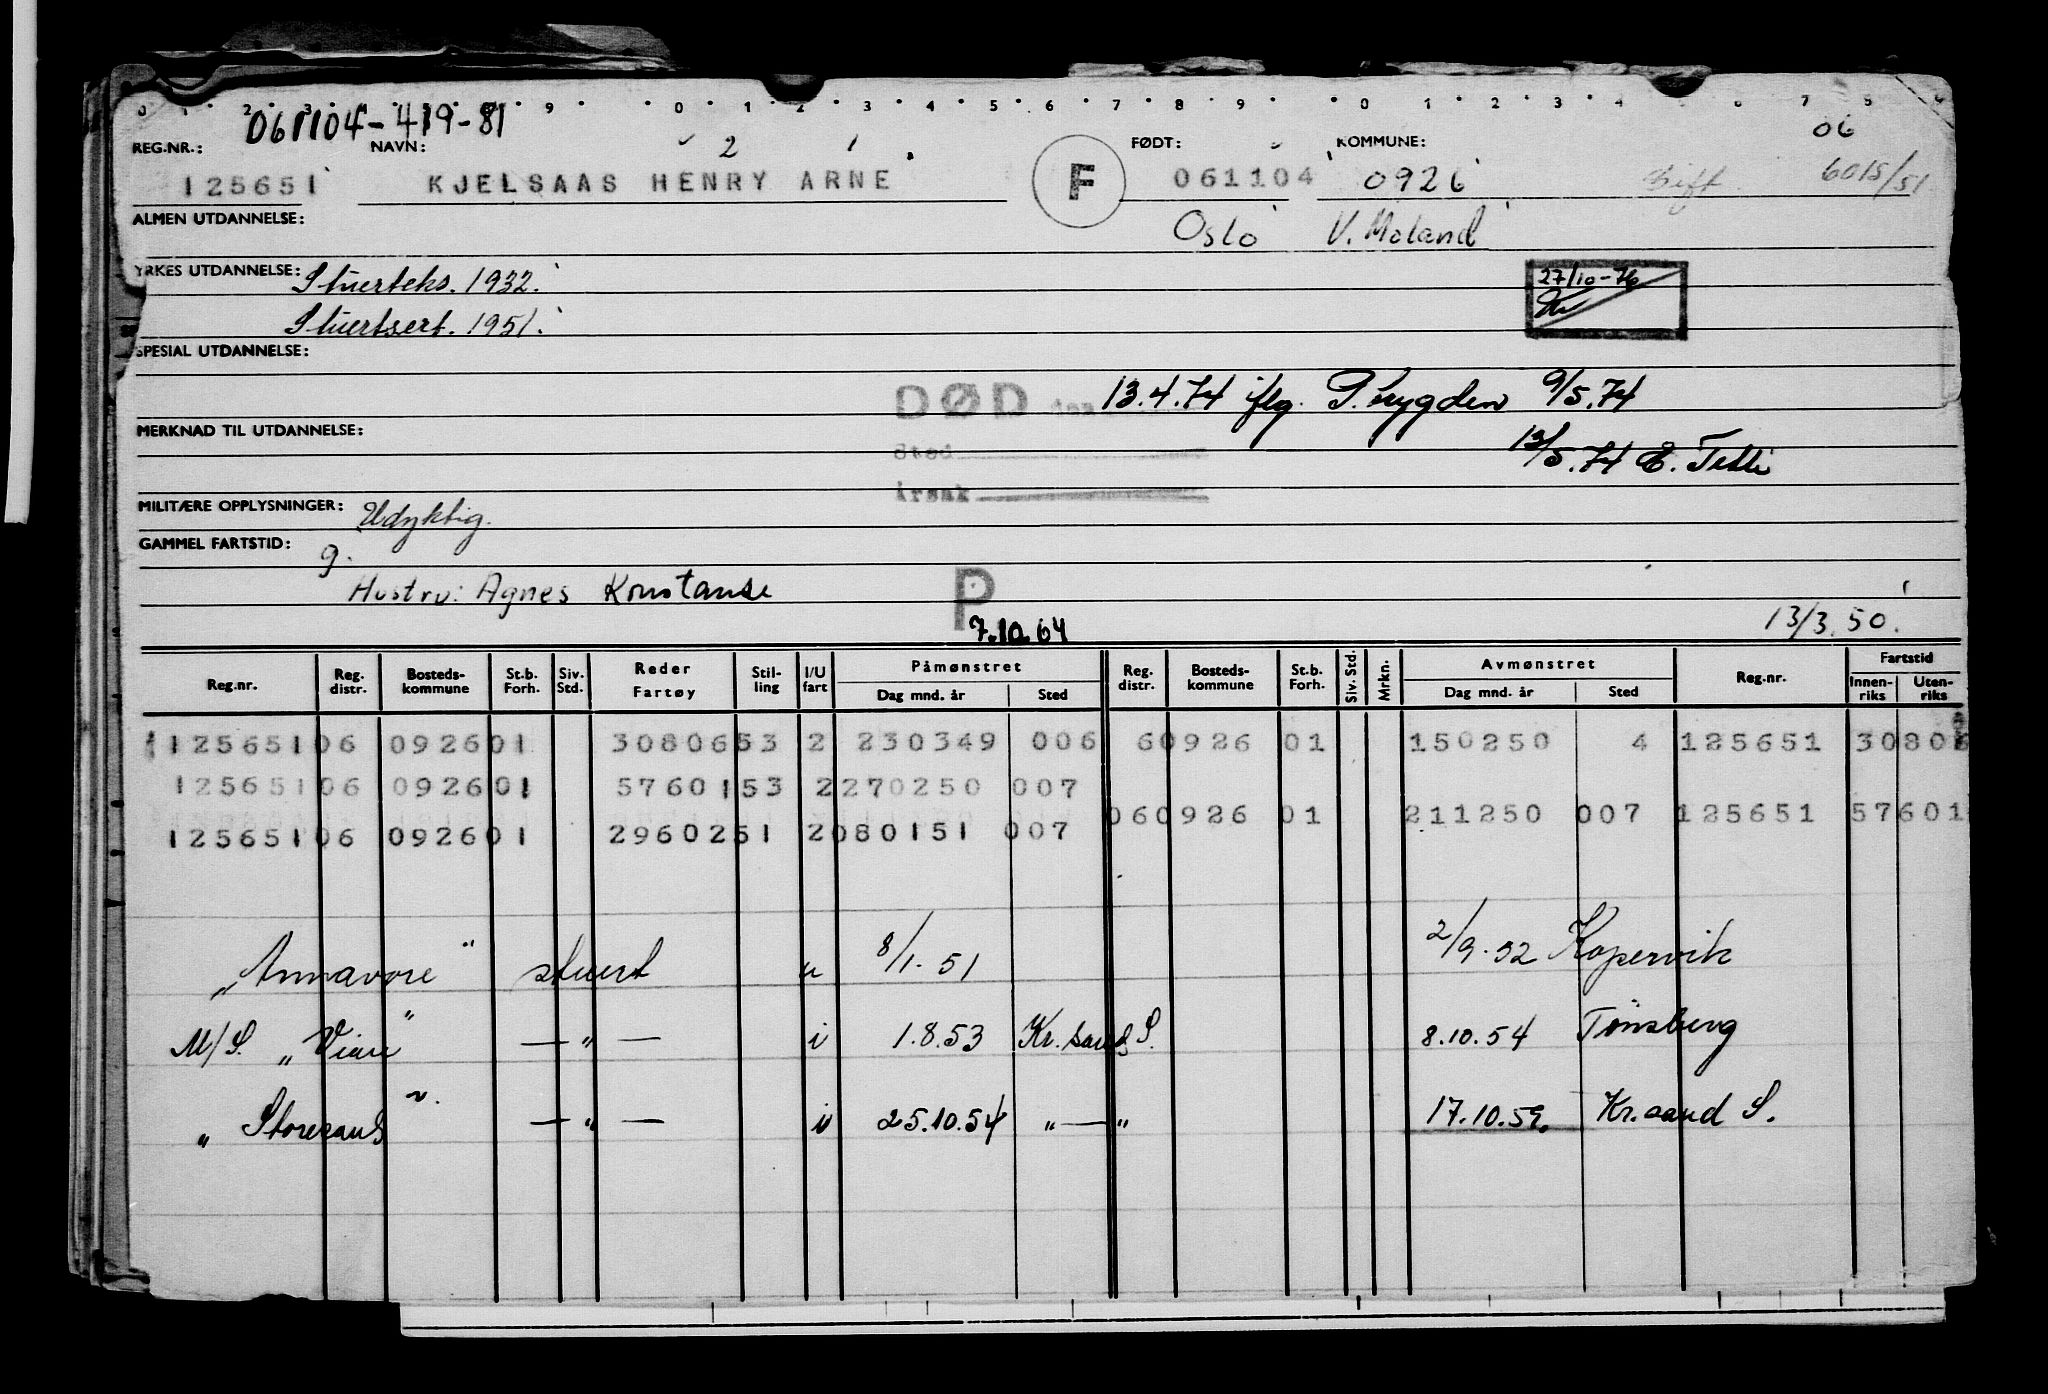 061104-419-81
06
REG.NR.: NAVN: 2 1 FØDT: KOMMUNE:
125651 KJELSAAS HENRY ARNE F 061104 0926 Gift 6015/51
ALMEN UTDANNELSE: Oslo V. Moland
YRKES UTDANNELSE: Stuerteks. 1932. 27/10-76
Stuertsert. 1951.
SPESIAL UTDANNELSE:
DØD den 13.4.74 iflg. P.trygden 9/5.74
MERKNAD TIL UTDANNELSE:
Sted 13/5.74
Årsak
MILITÆRE OPPLYSNINGER: Udyktig.
GAMMEL FARTSTID: g.
Hustru: Agnes Konstanse P
7.10.64 13/3.50.
Reg.nr. Reg. distr. Bosteds-kommune St.b. Forh. Siv. Std. Reder Fartøy Stil-ling I/U fart Påmønstret Dag mnd. år Sted Reg. distr. Bosteds-kommune St.b. Forh. Siv. Std. Mrkn. Avmønstret Dag mnd. år Sted Reg.nr. Fartstid Innen-riks Uten-riks
125651 06 0926 01 3080653 2 230349 006 60926 01 150250 4 125651 30806
125651 06 0926 01 5760153 2 270250 007
060926 01 211250 007 125651 57601
125651 06 0926 01 2960251 2 080151 007
"Annavore" stuert u 8/1.51 2/9.52 Kopervik
M/S. "Viari" — " — i 1.8.53 Kr.sand S. 8.10.54 Tønsberg
" Storesand" — " — i 25.10.54 " — " 17.10.59. Kr.sand S.